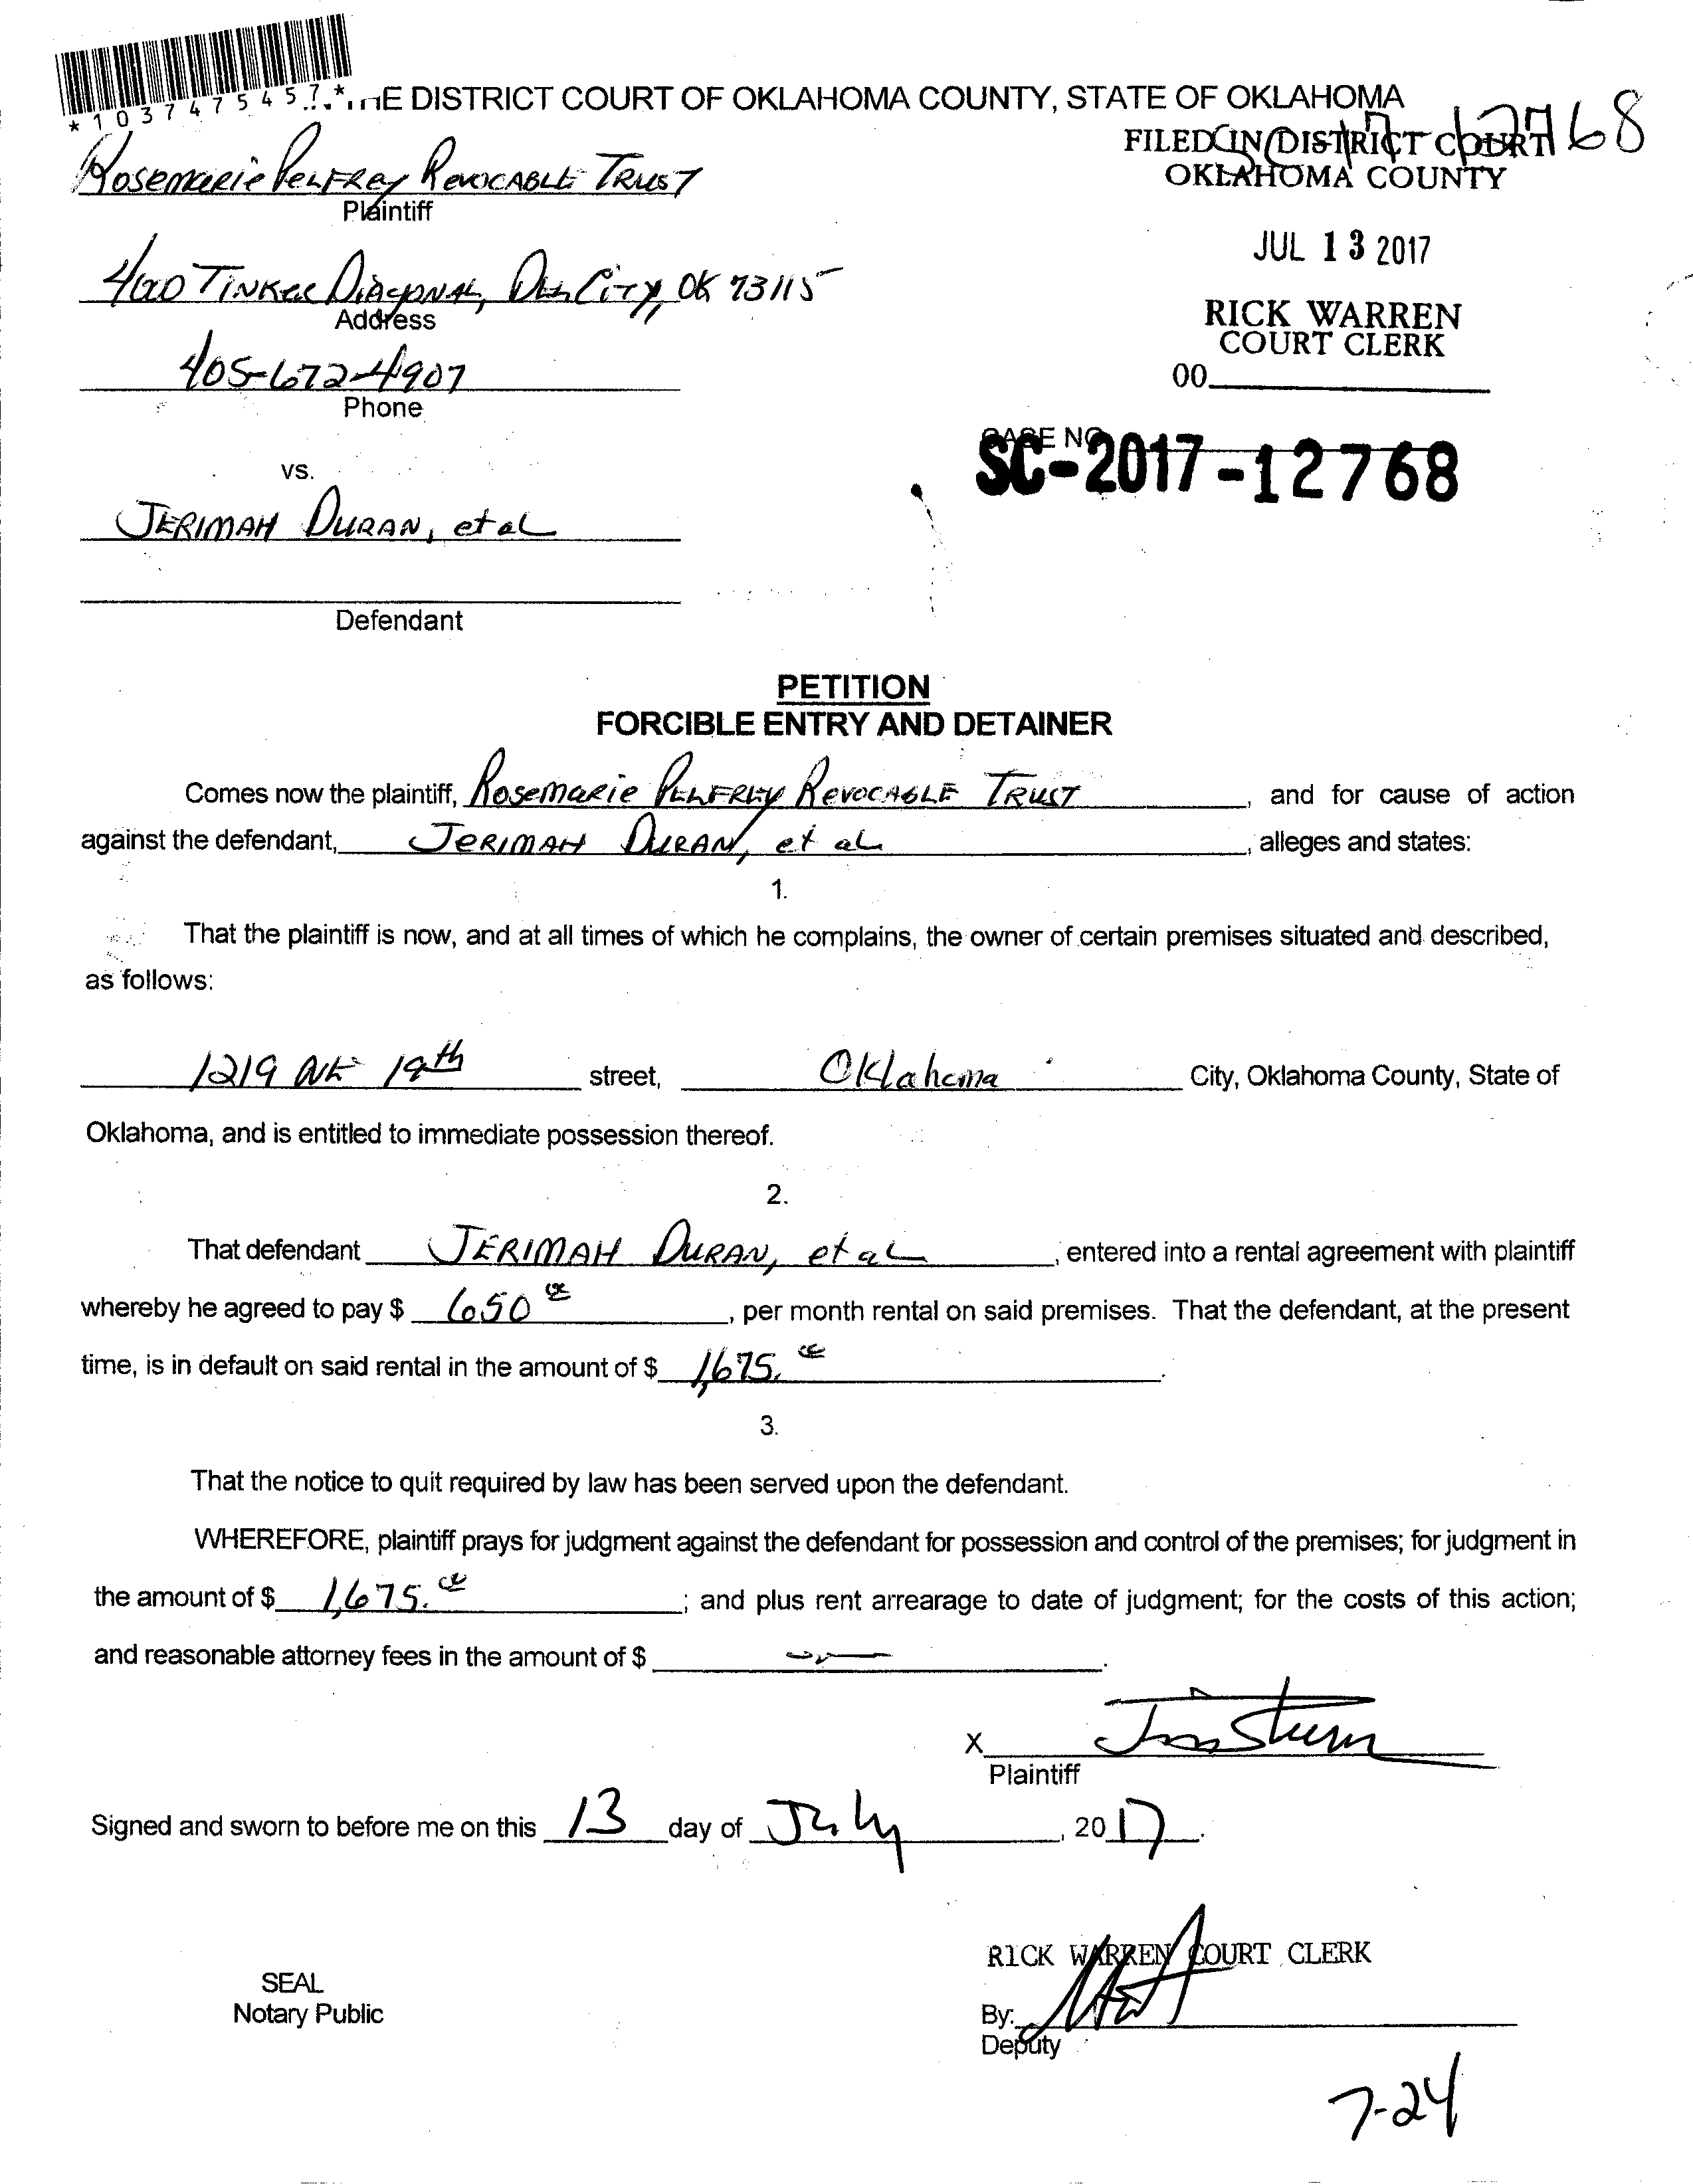 *1037475457*
HE DISTRICT COURT OF OKLAHOMA COUNTY, STATE OF OKLAHOMA
FILED IN DISTRICT COURT
OKLAHOMA COUNTY
Rosemarie Pelfrey Revocable Trust
Plaintiff
JUL 13 2017
Tinker Diagonal, Del City, OK 73115
Address
RICK WARREN
COURT CLERK
405-672-4907
Phone
00
CASE NO
SC-2017-12768
vs.
JERIMAH DURAN, et al
Defendant
PETITION
FORCIBLE ENTRY AND DETAINER
Comes now the plaintiff, Rosemarie Pelfrey Revocable Trust, and for cause of action
against the defendant, Jerimah Duran, et al, alleges and states:
1.
That the plaintiff is now, and at all times of which he complains, the owner of certain premises situated and described,
as follows:
1219 NE 19th street, Oklahoma City, Oklahoma County, State of
Oklahoma, and is entitled to immediate possession thereof.
2.
That defendant JERIMAH DURAN, et al, entered into a rental agreement with plaintiff
whereby he agreed to pay $ 650 00, per month rental on said premises. That the defendant, at the present
time, is in default on said rental in the amount of $ 1,675. 00.
3.
That the notice to quit required by law has been served upon the defendant.
WHEREFORE, plaintiff prays for judgment against the defendant for possession and control of the premises; for judgment in
the amount of $ 1,675. 00; and plus rent arrearage to date of judgment; for the costs of this action;
and reasonable attorney fees in the amount of $ .
X
Plaintiff
Signed and sworn to before me on this 13 day of July, 2017.
RICK WARREN COURT CLERK
SEAL
Notary Public
By:
Deputy
7-24